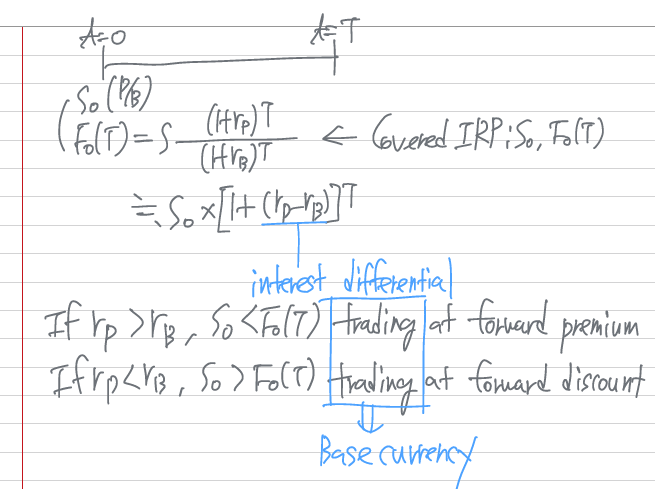 t=0 t=T
S₀(P/B)
F₀(T) = S (1+rp)^T / (1+rB)^T ← Covered IRP: S₀, F₀(T)
≒ S₀ × [1+(rp-rB)]^T
interest differential
If rp > rB, S₀ < F₀(T) trading at forward premium
If rp < rB, S₀ > F₀(T) trading at forward discount
⇓
Base currency